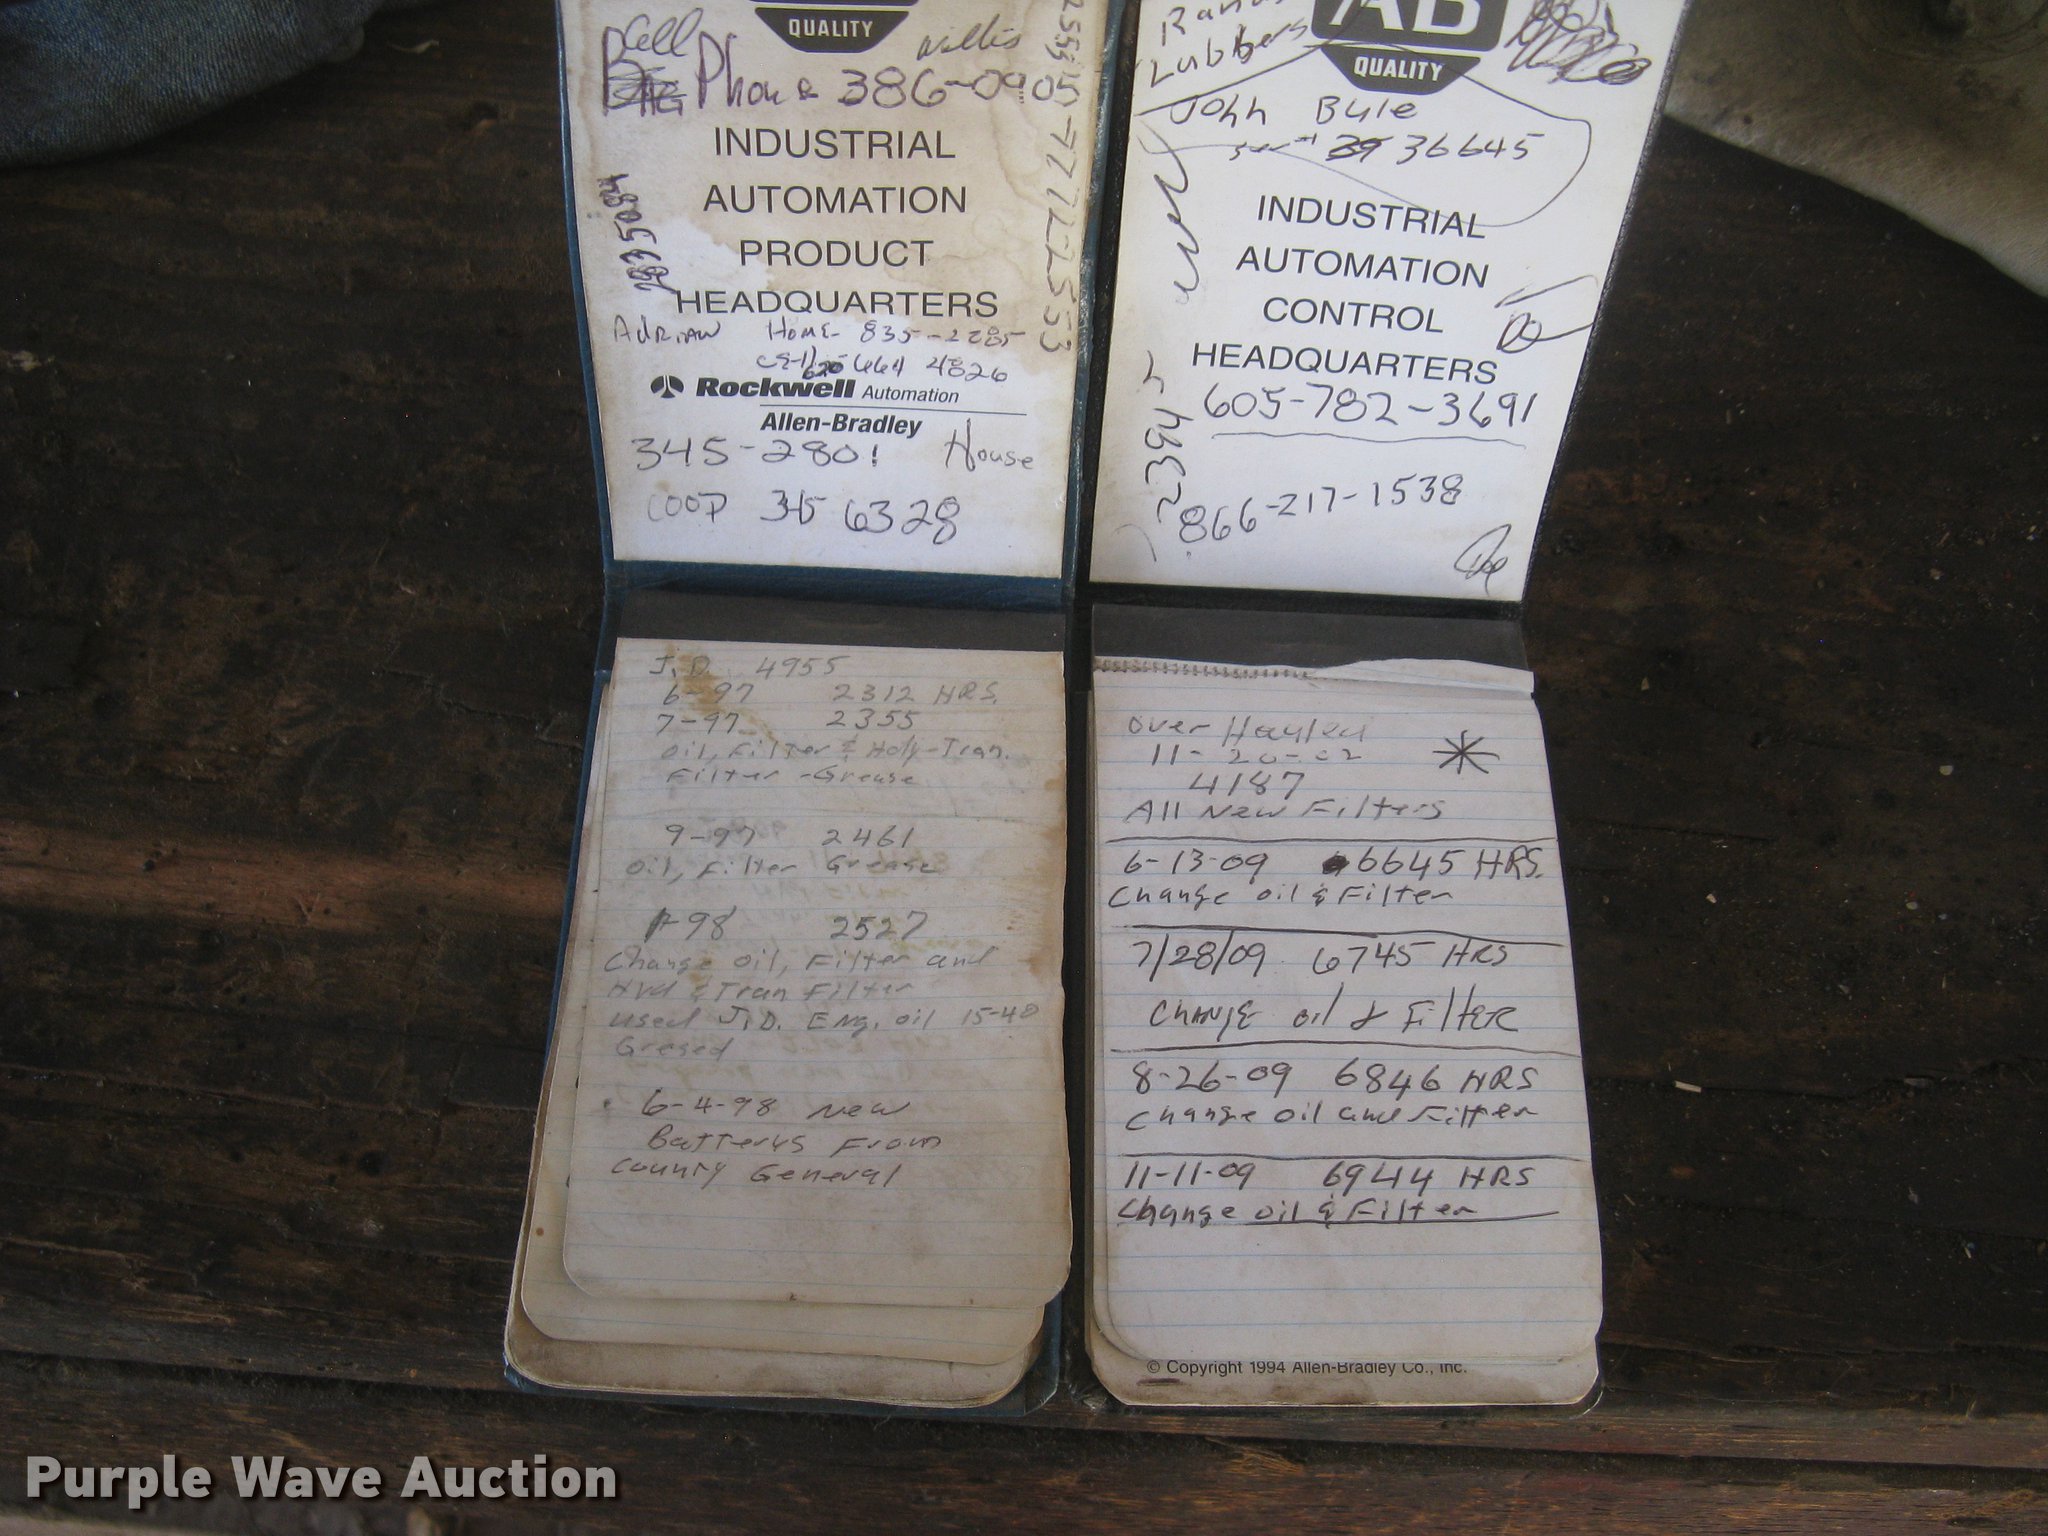 QUALITY
Cell
Willis
Phone 386-0905
INDUSTRIAL
AUTOMATION
PRODUCT
HEADQUARTERS
2835084
-772-2553
Adrian Home- 835-2285
Cell 620 664 4826
Rockwell Automation
Allen-Bradley
345-2801 House
COOP 345 6328
J.D. 4955
6-97 2312 HRS.
7-97 2355
Oil, Filter & Hdy-Tran.
Filter -Grease
9-97 2461
Oil, Filter Grease
98 2527
Change Oil, Filter and
Hyd & Tran Filter
used J.D. Eng. oil 15-40
Gresed
6-4-98 New
Batterys From
County General
AB
QUALITY
Lubbers
John Byle
36645
INDUSTRIAL
AUTOMATION
CONTROL
HEADQUARTERS
605-782-3691
866-217-1538
Over Hauled
11-20-02
4187
All New Filters
6-13-09 6645 HRS.
Change Oil & Filter
7/28/09 6745 HRS
CHANGE Oil & FilTER
8-26-09 6846 HRS
Change Oil and Filter
11-11-09 6944 HRS
Change Oil & Filter
© Copyright 1994 Allen-Bradley Co., Inc.
Purple Wave Auction